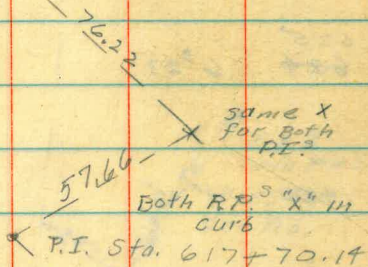 76.22
same x
for Both
P.I.s
57.66
Both R.P.s "x" in
curb
P.I. Sta. 617+70.14